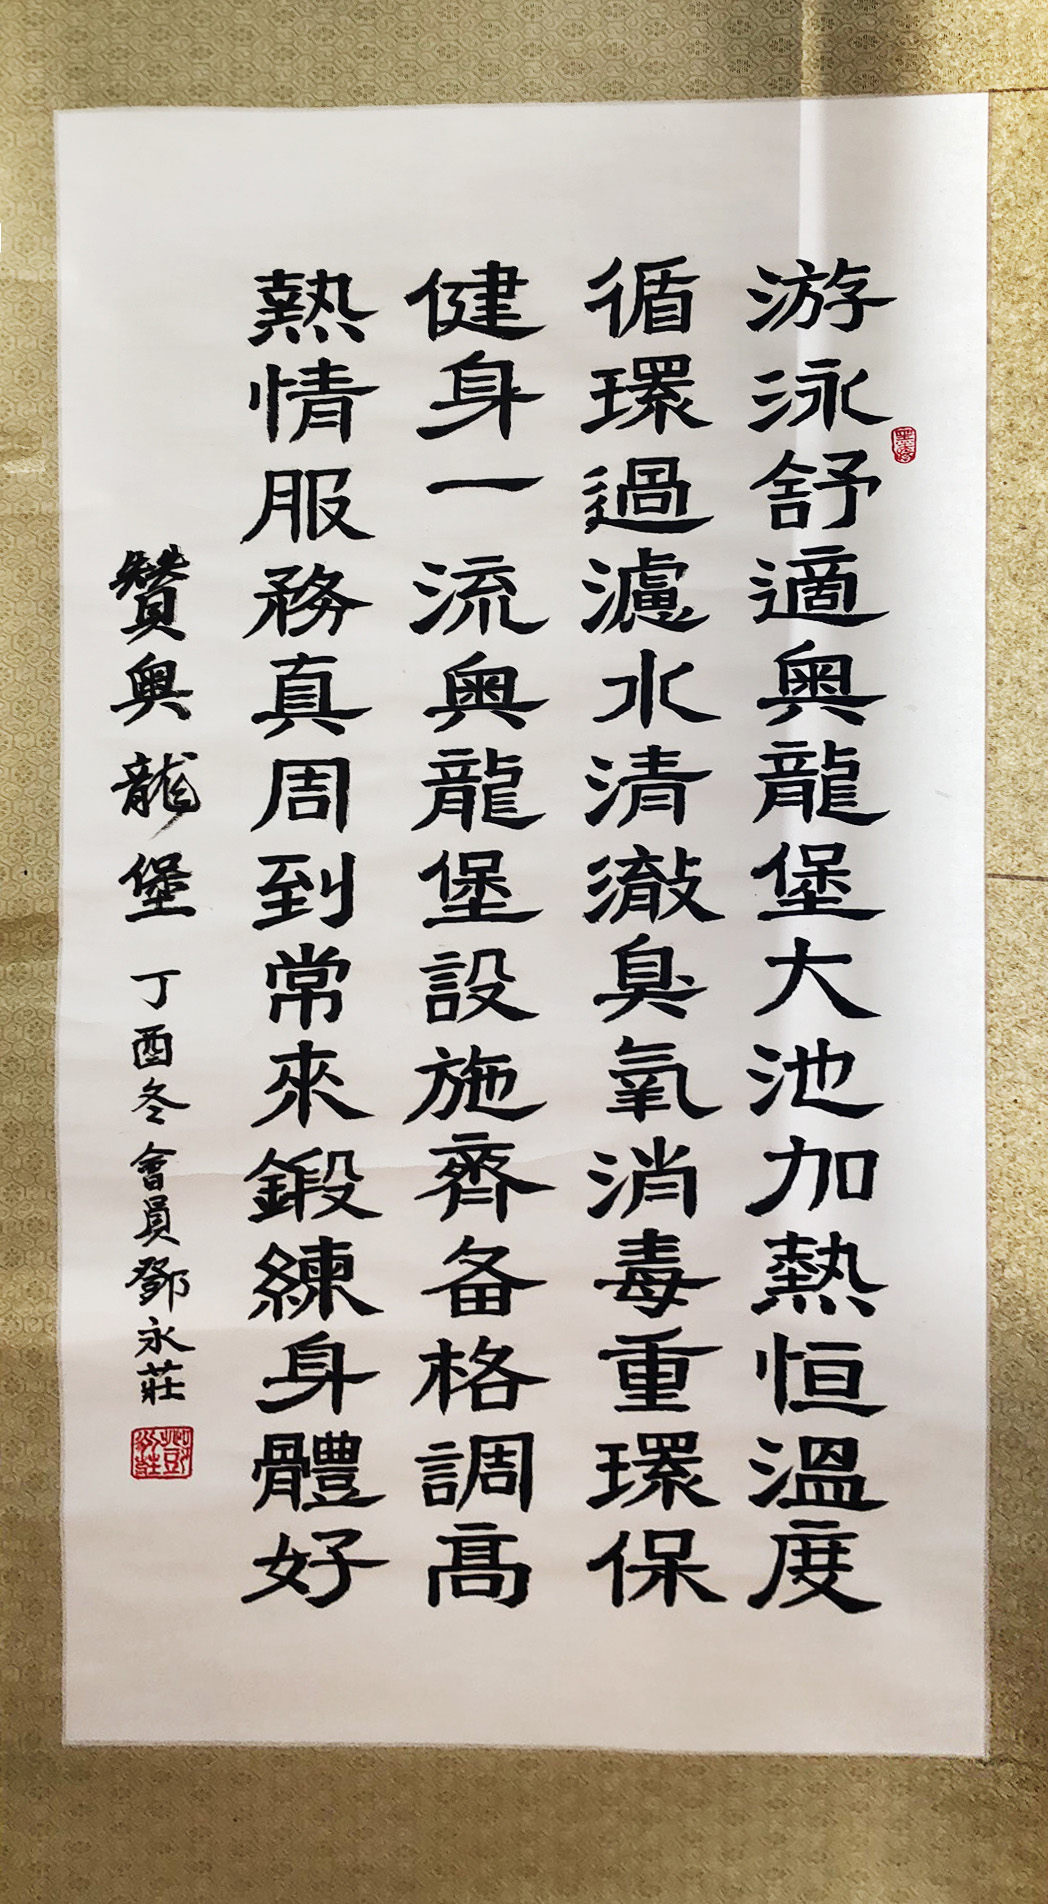 游泳舒適奥龍堡大池加熱恒溫度
循環過濾水清澈臭氧消毒重環保
健身一流奥龍堡設施齊备格調高
熱情服務真周到常來鍛練身體好
贊奥龍堡 丁酉冬會員鄧永莊